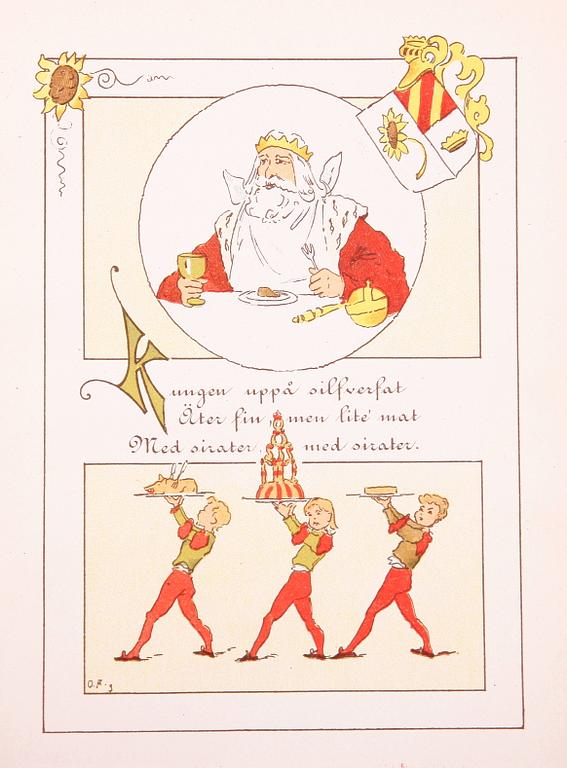 Kungen uppå silfverfat
Äter fin, men lite' mat
Med sirater, med sirater.